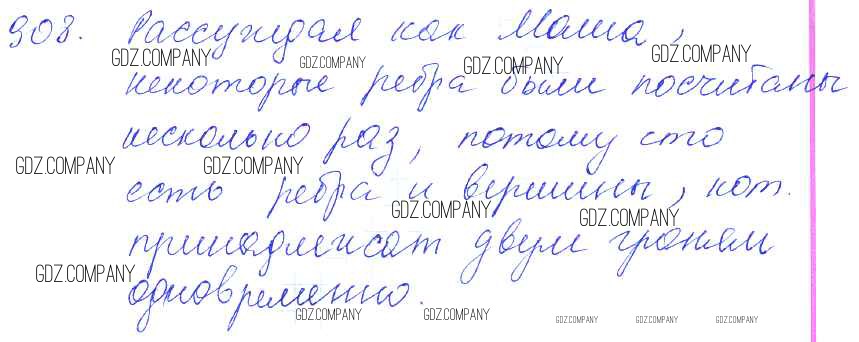 908. Рассуждая как Маша,
GDZ.COMPANY GDZ.COMPANY GDZ.COMPANY GDZ.COMPANY
некоторые ребра были посчитаны
несколько раз, потому что
GDZ.COMPANY GDZ.COMPANY
есть ребра и вершины, кот.
GDZ.COMPANY GDZ.COMPANY
принадлежат двум граням
GDZ.COMPANY
одновременно.
GDZ.COMPANY GDZ.COMPANY GDZ.COMPANY GDZ.COMPANY GDZ.COMPANY